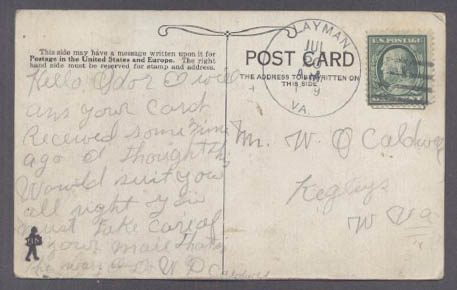 This side may have a message written upon it for
Postage in the United States and Europe. The right
hand side must be reserved for stamp and address.
Hello
I will
ans your Card
Received some time
ago I thought
Would suit you
all right you
must take care of
your mail
LAYMAN
JUL
VA.
POST CARD
THE ADDRESS TO BE WRITTEN ON
THIS SIDE
U.S. POSTAGE
Mr. W. O Caldwell
Kegleys
W Va